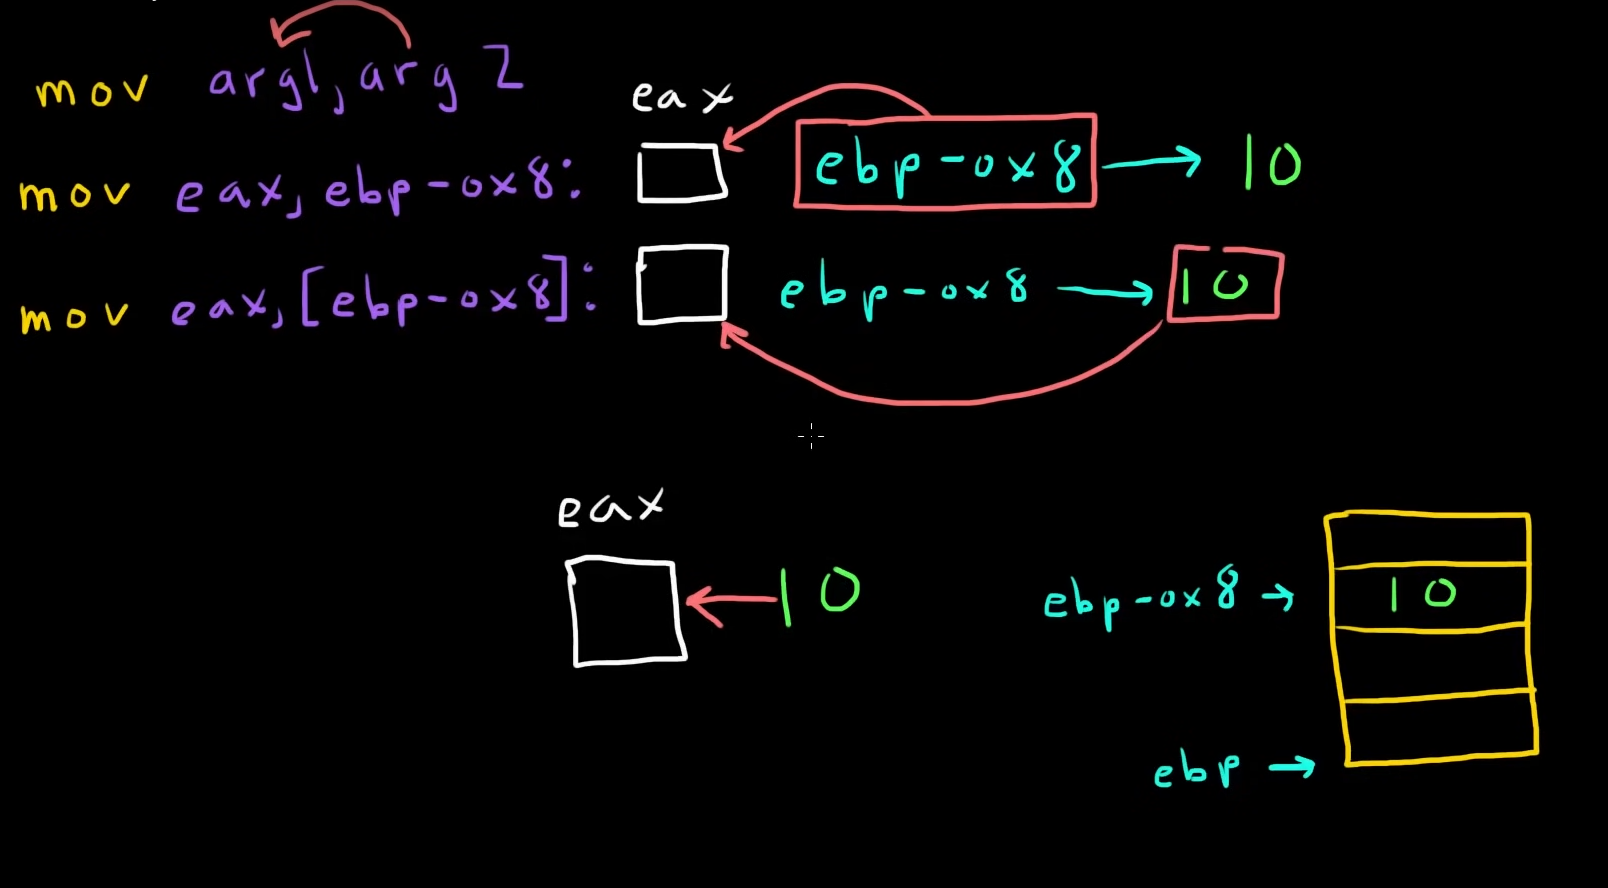 mov arg1, arg 2
eax
mov eax, ebp-0x8:
ebp-0x8 → 10
mov eax, [ebp-0x8]:
ebp-0x8 → 10
eax
10
ebp-0x8 →
10
ebp →